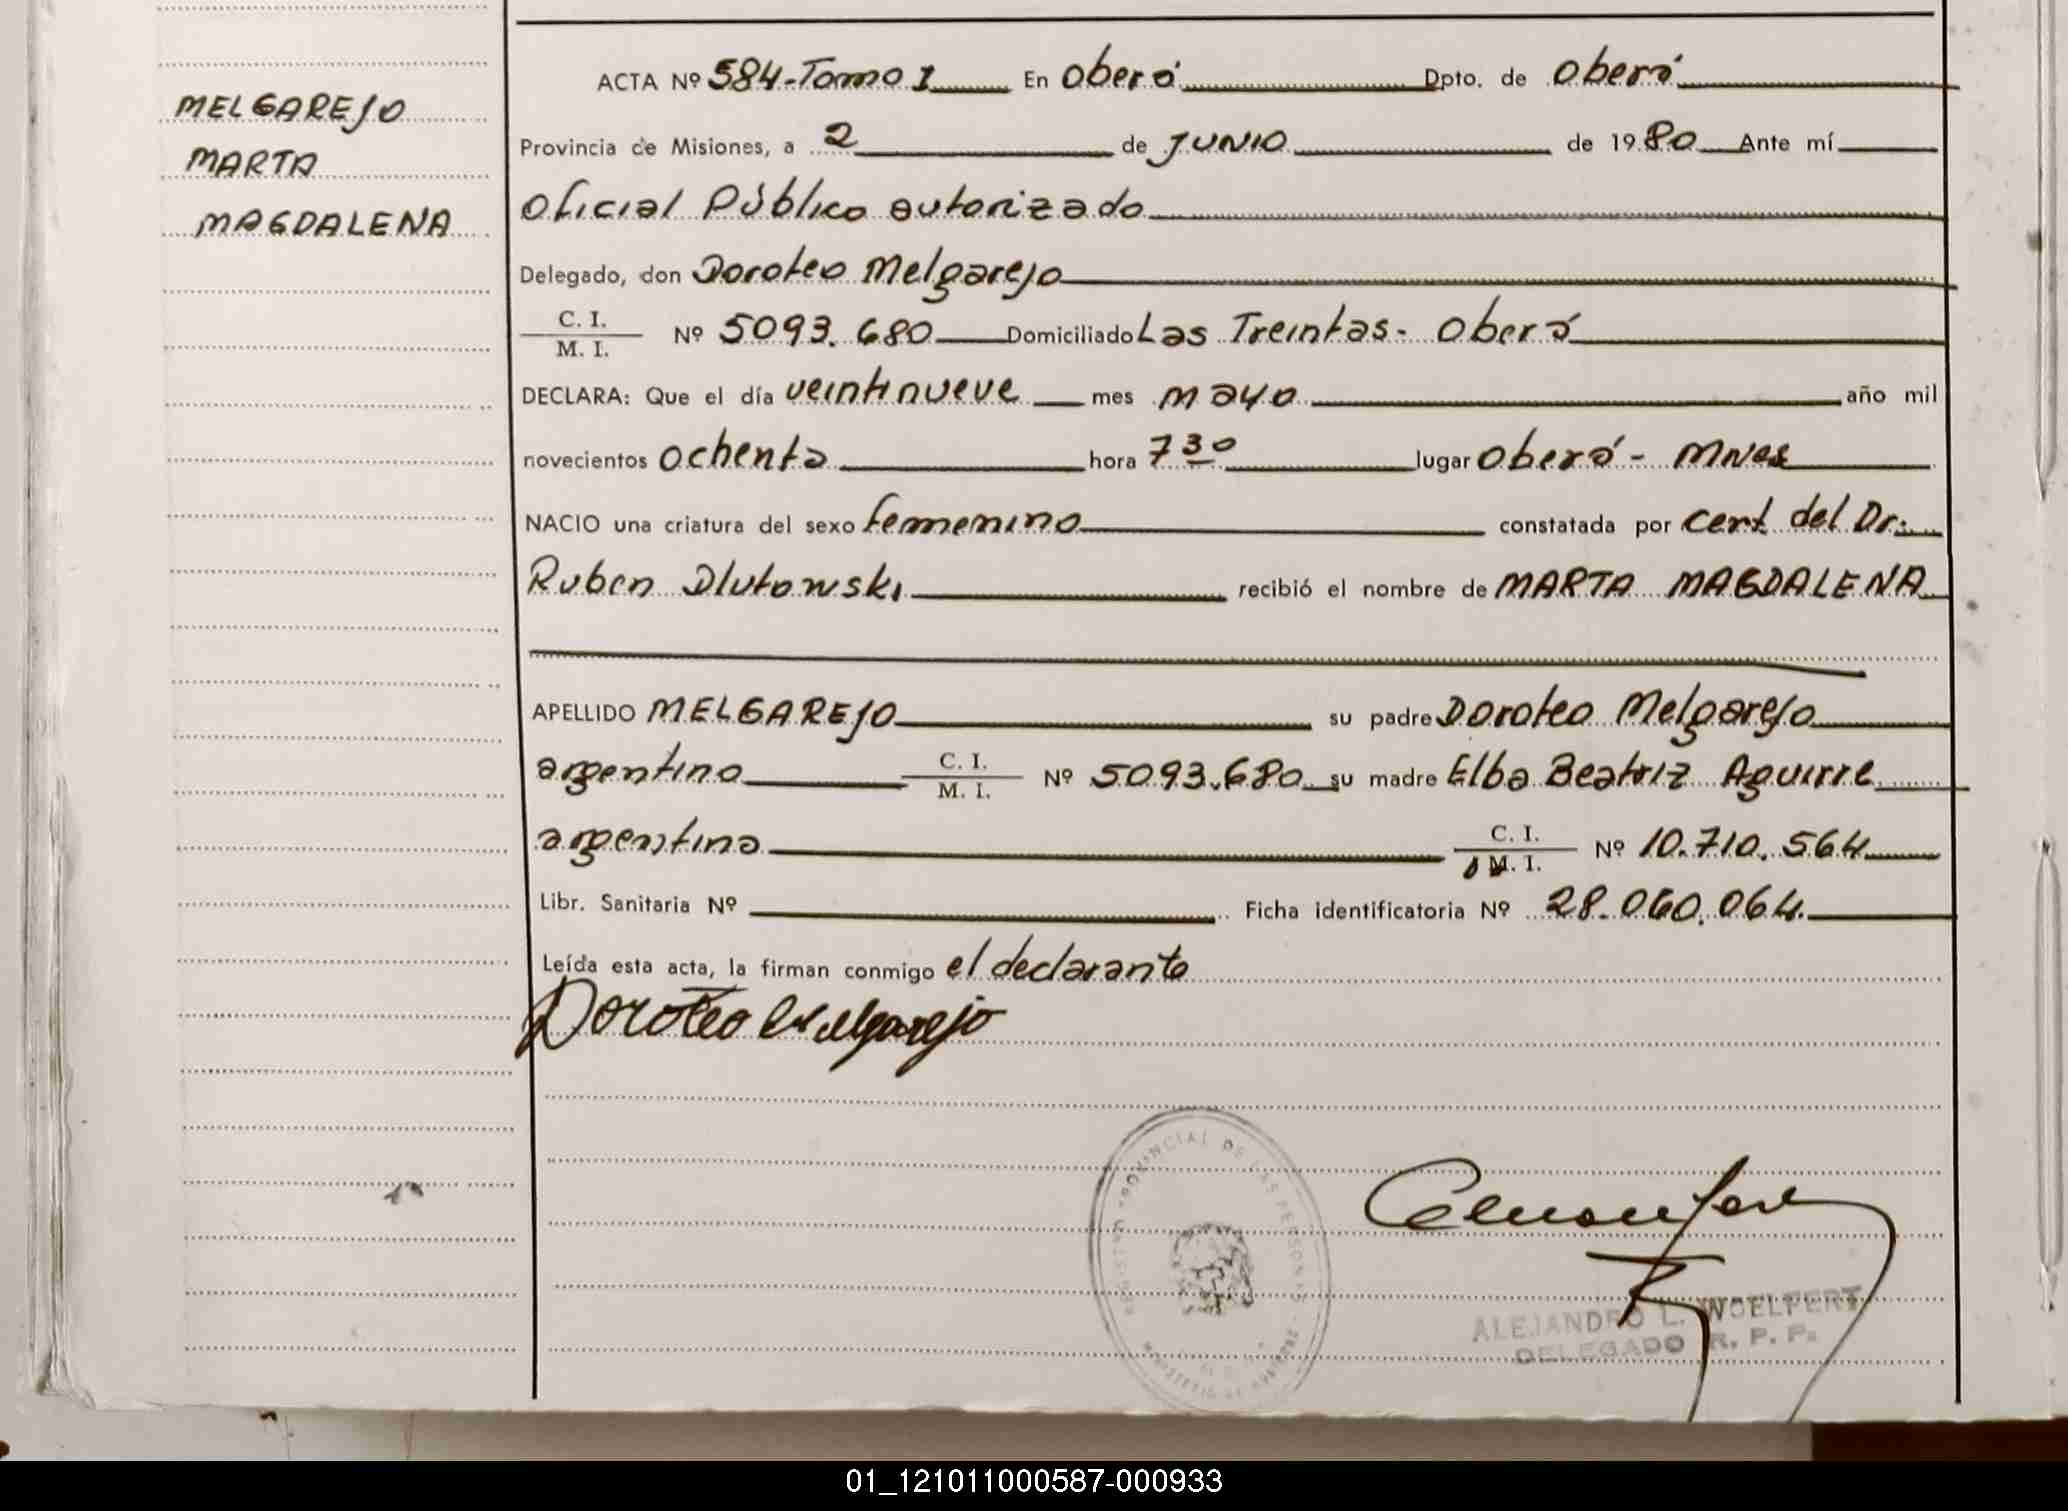 MELGAREJO
MARTA
MAGDALENA
ACTA Nº 584-Tomo I En Oberá Dpto. de Oberá
Provincia de Misiones, a 2 de JUNIO de 1980 Ante mí
Oficial Público autorizado
Delegado, don Doroteo Melgarejo
C. I.
M. I. Nº 5093.680 Domiciliado Las Treintas - Oberá
DECLARA: Que el día veintinueve mes mayo año mil
novecientos ochenta hora 7 30 lugar Oberá - Mnes
NACIO una criatura del sexo femenino constatada por cert del Dr.
Ruben Dlutowski recibió el nombre de MARTA MAGDALENA
APELLIDO MELGAREJO su padre Doroteo Melgarejo
argentino C. I. M. I. Nº 5093.680 su madre Elba Beatriz Aguirre
argentina C. I. M. I. Nº 10.710.564
Libr. Sanitaria Nº Ficha identificatoria Nº 28.060.064
Leída esta acta, la firman conmigo el declarante
Doroteo Melgarejo
PROVINCIAL DE LAS PERSONAS
ALEJANDRO L. WOELFERT
DELEGADO R. P. P.
01_121011000587-000933